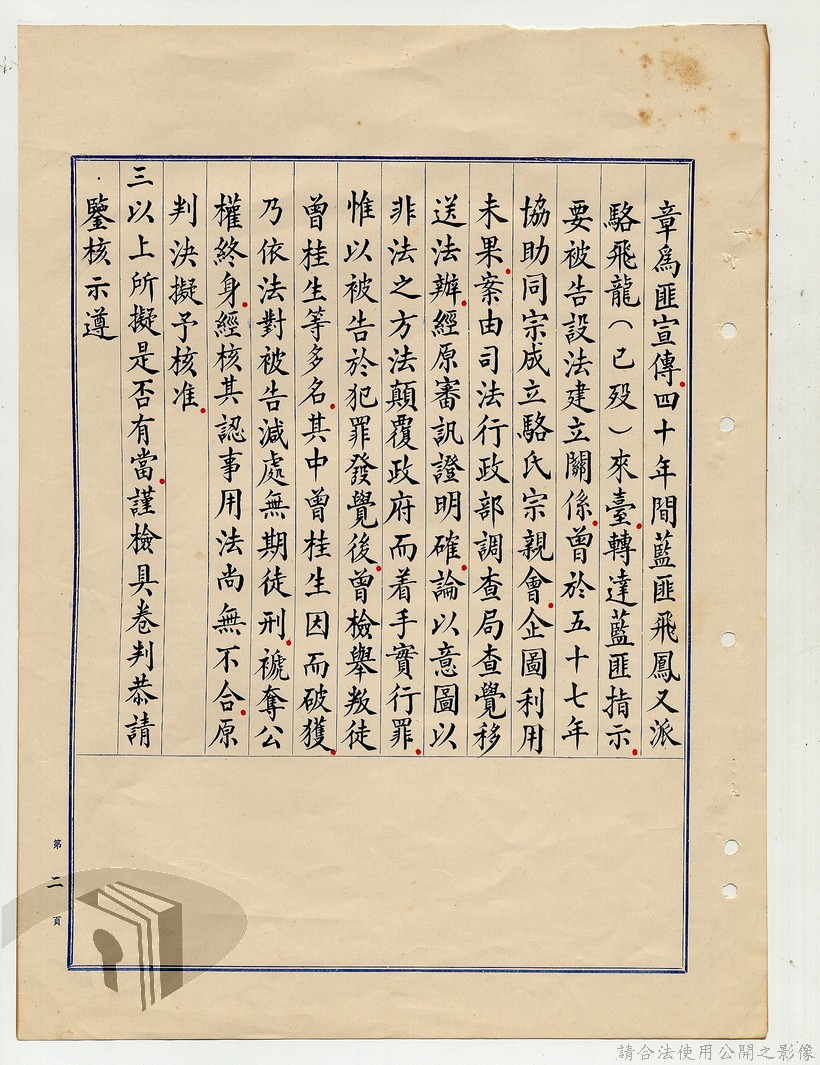 章為匪宣傳.四十年間藍匪飛鳳又派
駱飛龍(已歿)來臺.轉達藍匪指示.
要被告設法建立關係.曾於五十七年
協助同宗成立駱氏宗親會.企圖利用
未果.案由司法行政部調查局查覺移
送法辦.經原審訊證明確.論以意圖以
非法之方法顛覆政府而着手實行罪.
惟以被告於犯罪發覺後.曾檢舉叛徒
曾桂生等多名.其中曾桂生因而破獲.
乃依法對被告減處無期徒刑.褫奪公
權終身.經核其認事用法尚無不合.原
判決擬予核准.
三以上所擬是否有當.謹檢具卷判恭請
鑒核示遵
第二頁
請合法使用公開之影像